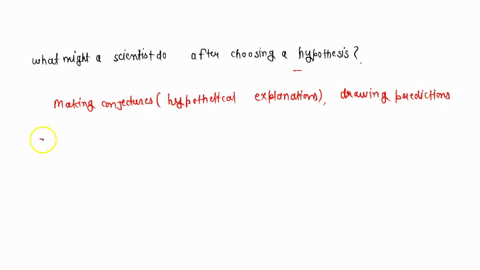 what might a scientist do after choosing a hypothesis?.
Making conjectures (hypothetical explanations), drawing predictions